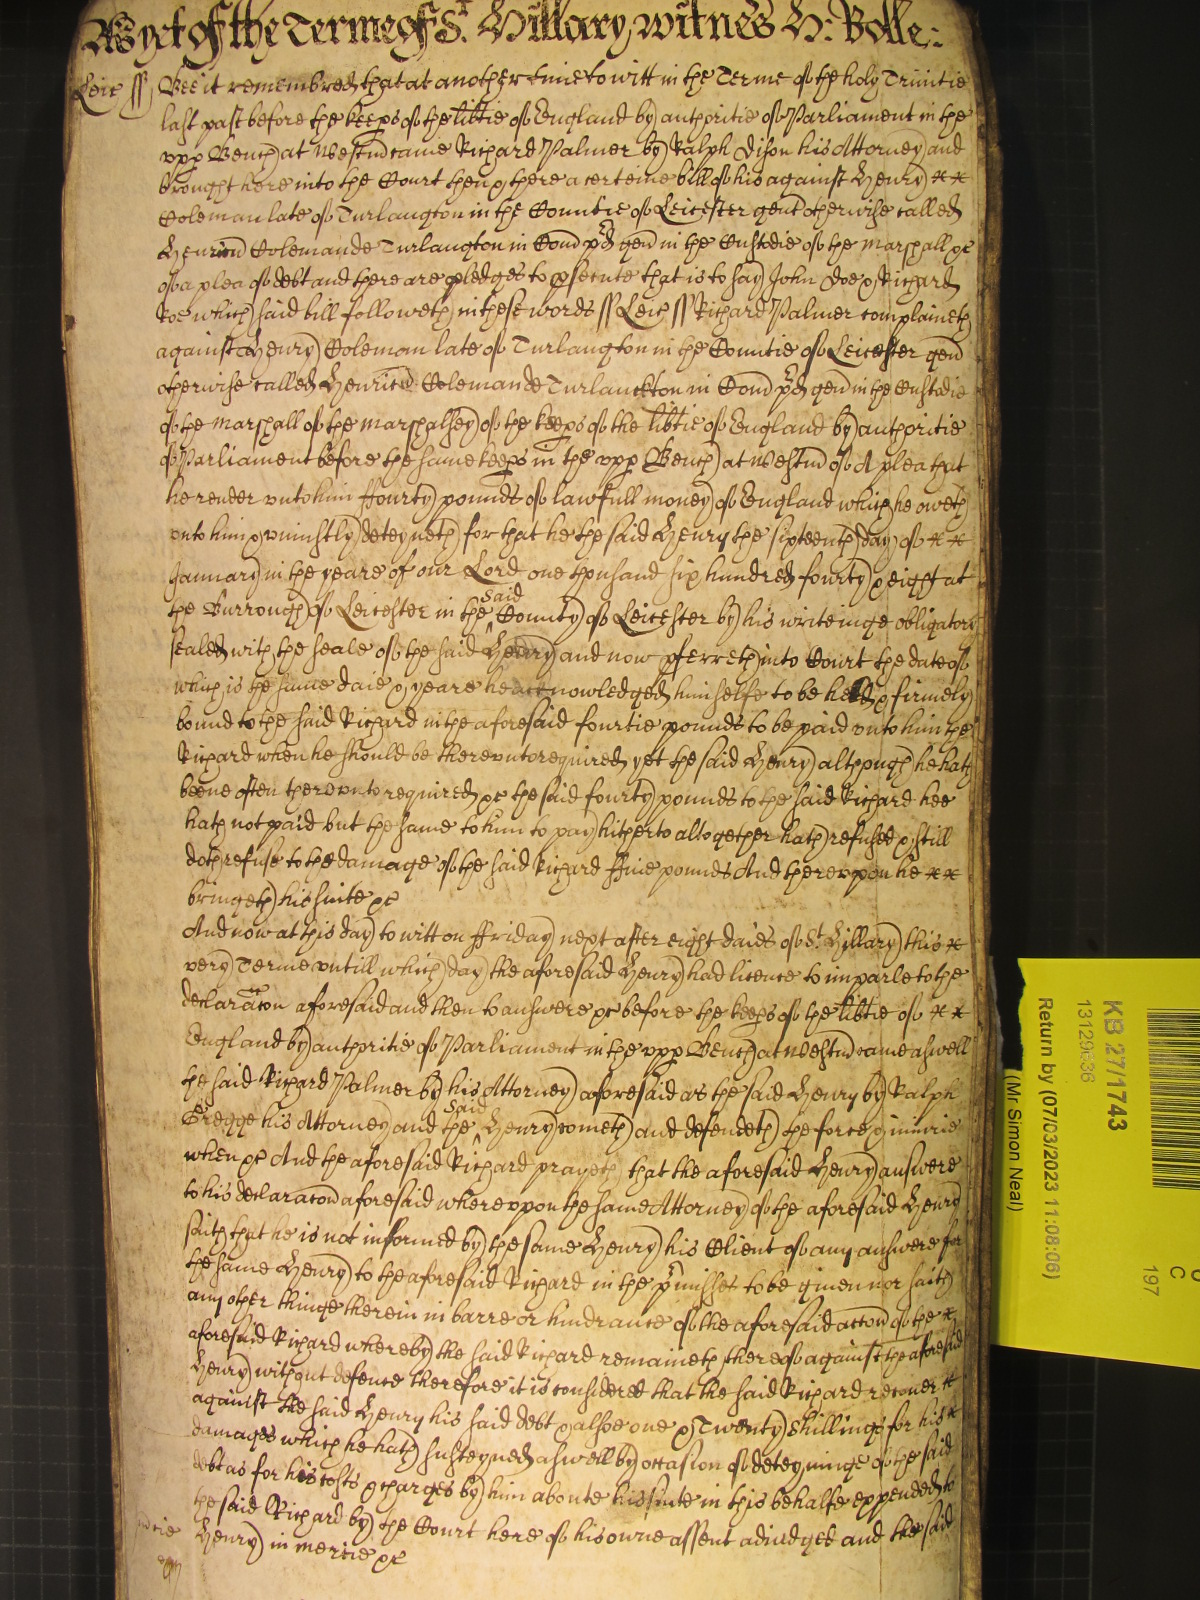 As yet of the Terme of St. Hillary, witnes H: Rolle:
Leic ss Bee it remembred that at another time to witt in the Terme of the holy Trinitie
last past before the keeps of the libtie of England by authoritie of Parliament in the
upp Bench at Westm came Richard Palmer by Ralph Dison his Attorney and
brought here into the Court then & there a certeine bill of his against Henry
Coleman late of Turlangton in the Countie of Leicester gent otherwise called
Henricu Coleman de Turlangton in Com pd gen in the Custodie of the Marshall &c
of a plea of debt and there are pledges to psecute that is to say John Doe & Richard
Roe which said bill followeth in these words ss Leic ss Richard Palmer complaineth
against Henry Coleman late of Turlangton in the Countie of Leicester gen
otherwise called Henricu Coleman de Turlanckton in Com pd gen in the Custodie
of the Marshall of the Marshalsey of the keeps of the libtie of England by authoritie
of Parliament before the same keeps in the upp Bench at Westm of A plea that
he render unto him ffourty pounds of lawfull money of England which he oweth
unto him & uniustly deteyneth for that he the said Henry the sixteenth day of
January in the yeare of our Lord one thousand six hundred fourty & eight at
the Burrough of Leicester in the said County of Leicester by his writeinge obligatory
sealed with the seale of the said Henry and now pferreth into Court the date of
which is the same daie & yeare he acknowledged himselfe to be held & firmely
bound to the said Richard in the aforesaid fourtie pounds to be paid unto him the
Richard when he should be thereunto required yet the said Henry although he hath
beene often thereunto required &c the said fourty pounds to the said Richard hee
hath not paid but the same to him to pay hitherto altogether hath refused & still
doth refuse to the damage of the said Richard ffive pounds And thereupon he
bringeth his suite &c
And now at this day to witt on ffriday next after eight daies of St. Hillary this
very Terme untill which day the aforesaid Henry had licence to imparle to the
declaracon aforesaid and then to answere &c before the keeps of the libtie of
England by authoritie of Parliament in the upp Bench at Westm came aswell
the said Richard Palmer by his Attorney aforesaid as the said Henry by Ralph
Gregge his Attorney and the said Henry cometh and defendeth the force & iniurie
when &c And the aforesaid Richard prayeth that the aforesaid Henry answere
to his declaracon aforesaid whereupon the same Attorney of the aforesaid Henry
saith that he is not informed by the same Henry his Client of any answere for
the same Henry to the aforesaid Richard in the pmisses to be given nor saith
any other thinge therein in barre or hindrance of the aforesaid accon of the
aforesaid Richard whereby the said Richard remaineth thereof against the aforesaid
Henry without defence therefore it is considered that the said Richard recover
against the said Henry his said debt & alsoe one & Twenty shillings for his
damages which he hath susteyned aswell by occasion of deteyninge of the said
debt as for his costs & charges by him aboute his suite in this behalfe expended to
the said Richard by the Court here of his owne assent adiudged and the said
Henry in mercie &c
KB 27/1743
13129636
Return by (07/03/2023 11:08:06)
(Mr Simon Neal)
C
197